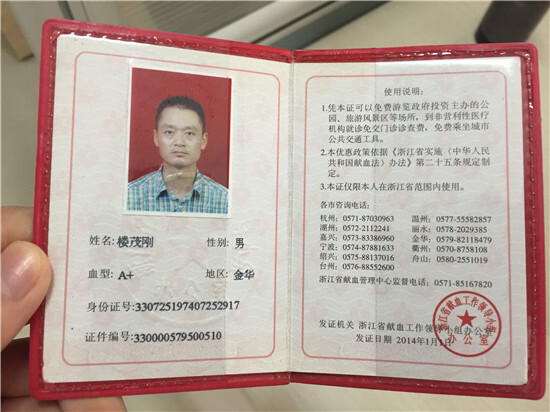 姓名:楼茂刚 性别:男
血型:A+ 地区:金华
身份证号:330725197407252917
证件编号:330000579500510
使用说明:
1.凭本证可以免费游览政府投资主办的公
园、旅游风景区等场所,到非营利性医疗
机构就诊免交门诊诊查费,免费乘坐城市
公共交通工具。
2.本优惠政策依据《浙江省实施〈中华人民
共和国献血法〉办法》第二十五条规定制
定。
3.本证仅限本人在浙江省范围内使用。
各市咨询电话:
杭州:0571-87030963 温州:0577-55582857
湖州:0572-2112241 丽水:0578-2029385
嘉兴:0573-83386960 金华:0579-82118479
宁波:0574-87881633 衢州:0570-8758108
绍兴:0575-88137016 舟山:0580-2551019
台州:0576-88552600
浙江省献血管理中心监督电话:0571-85167820
发证机关 浙江省献血工作领导小组办公室
发证日期 2014年1月1日
浙江省献血工作领导小组
办公室